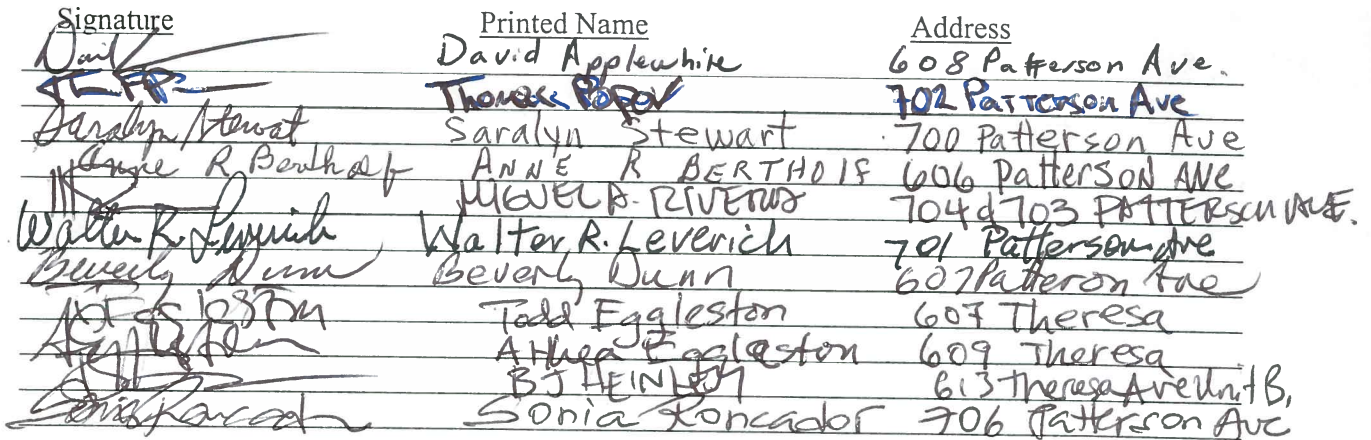 Signature Printed Name Address
David Applewhite 608 Patterson Ave.
Thomas Popov 702 Patterson Ave
Saralyn Stewart Saralyn Stewart 700 Patterson Ave
Anne R Bertholf ANNE R BERTHOLF 606 Patterson AVE
MIGUEL A. RIVERA 704 & 703 PATTERSON AVE.
Walter R. Leverich Walter R. Leverich 701 Patterson Ave
Beverly Dunn Beverly Dunn 607 Patteron Ave
Todd Eggleston 607 Theresa
Althea Eggleston 609 Theresa
BJ HEINLEY 613 Theresa Ave Unit B,
Sonia Roncador Sonia Roncador 706 Patterson Ave